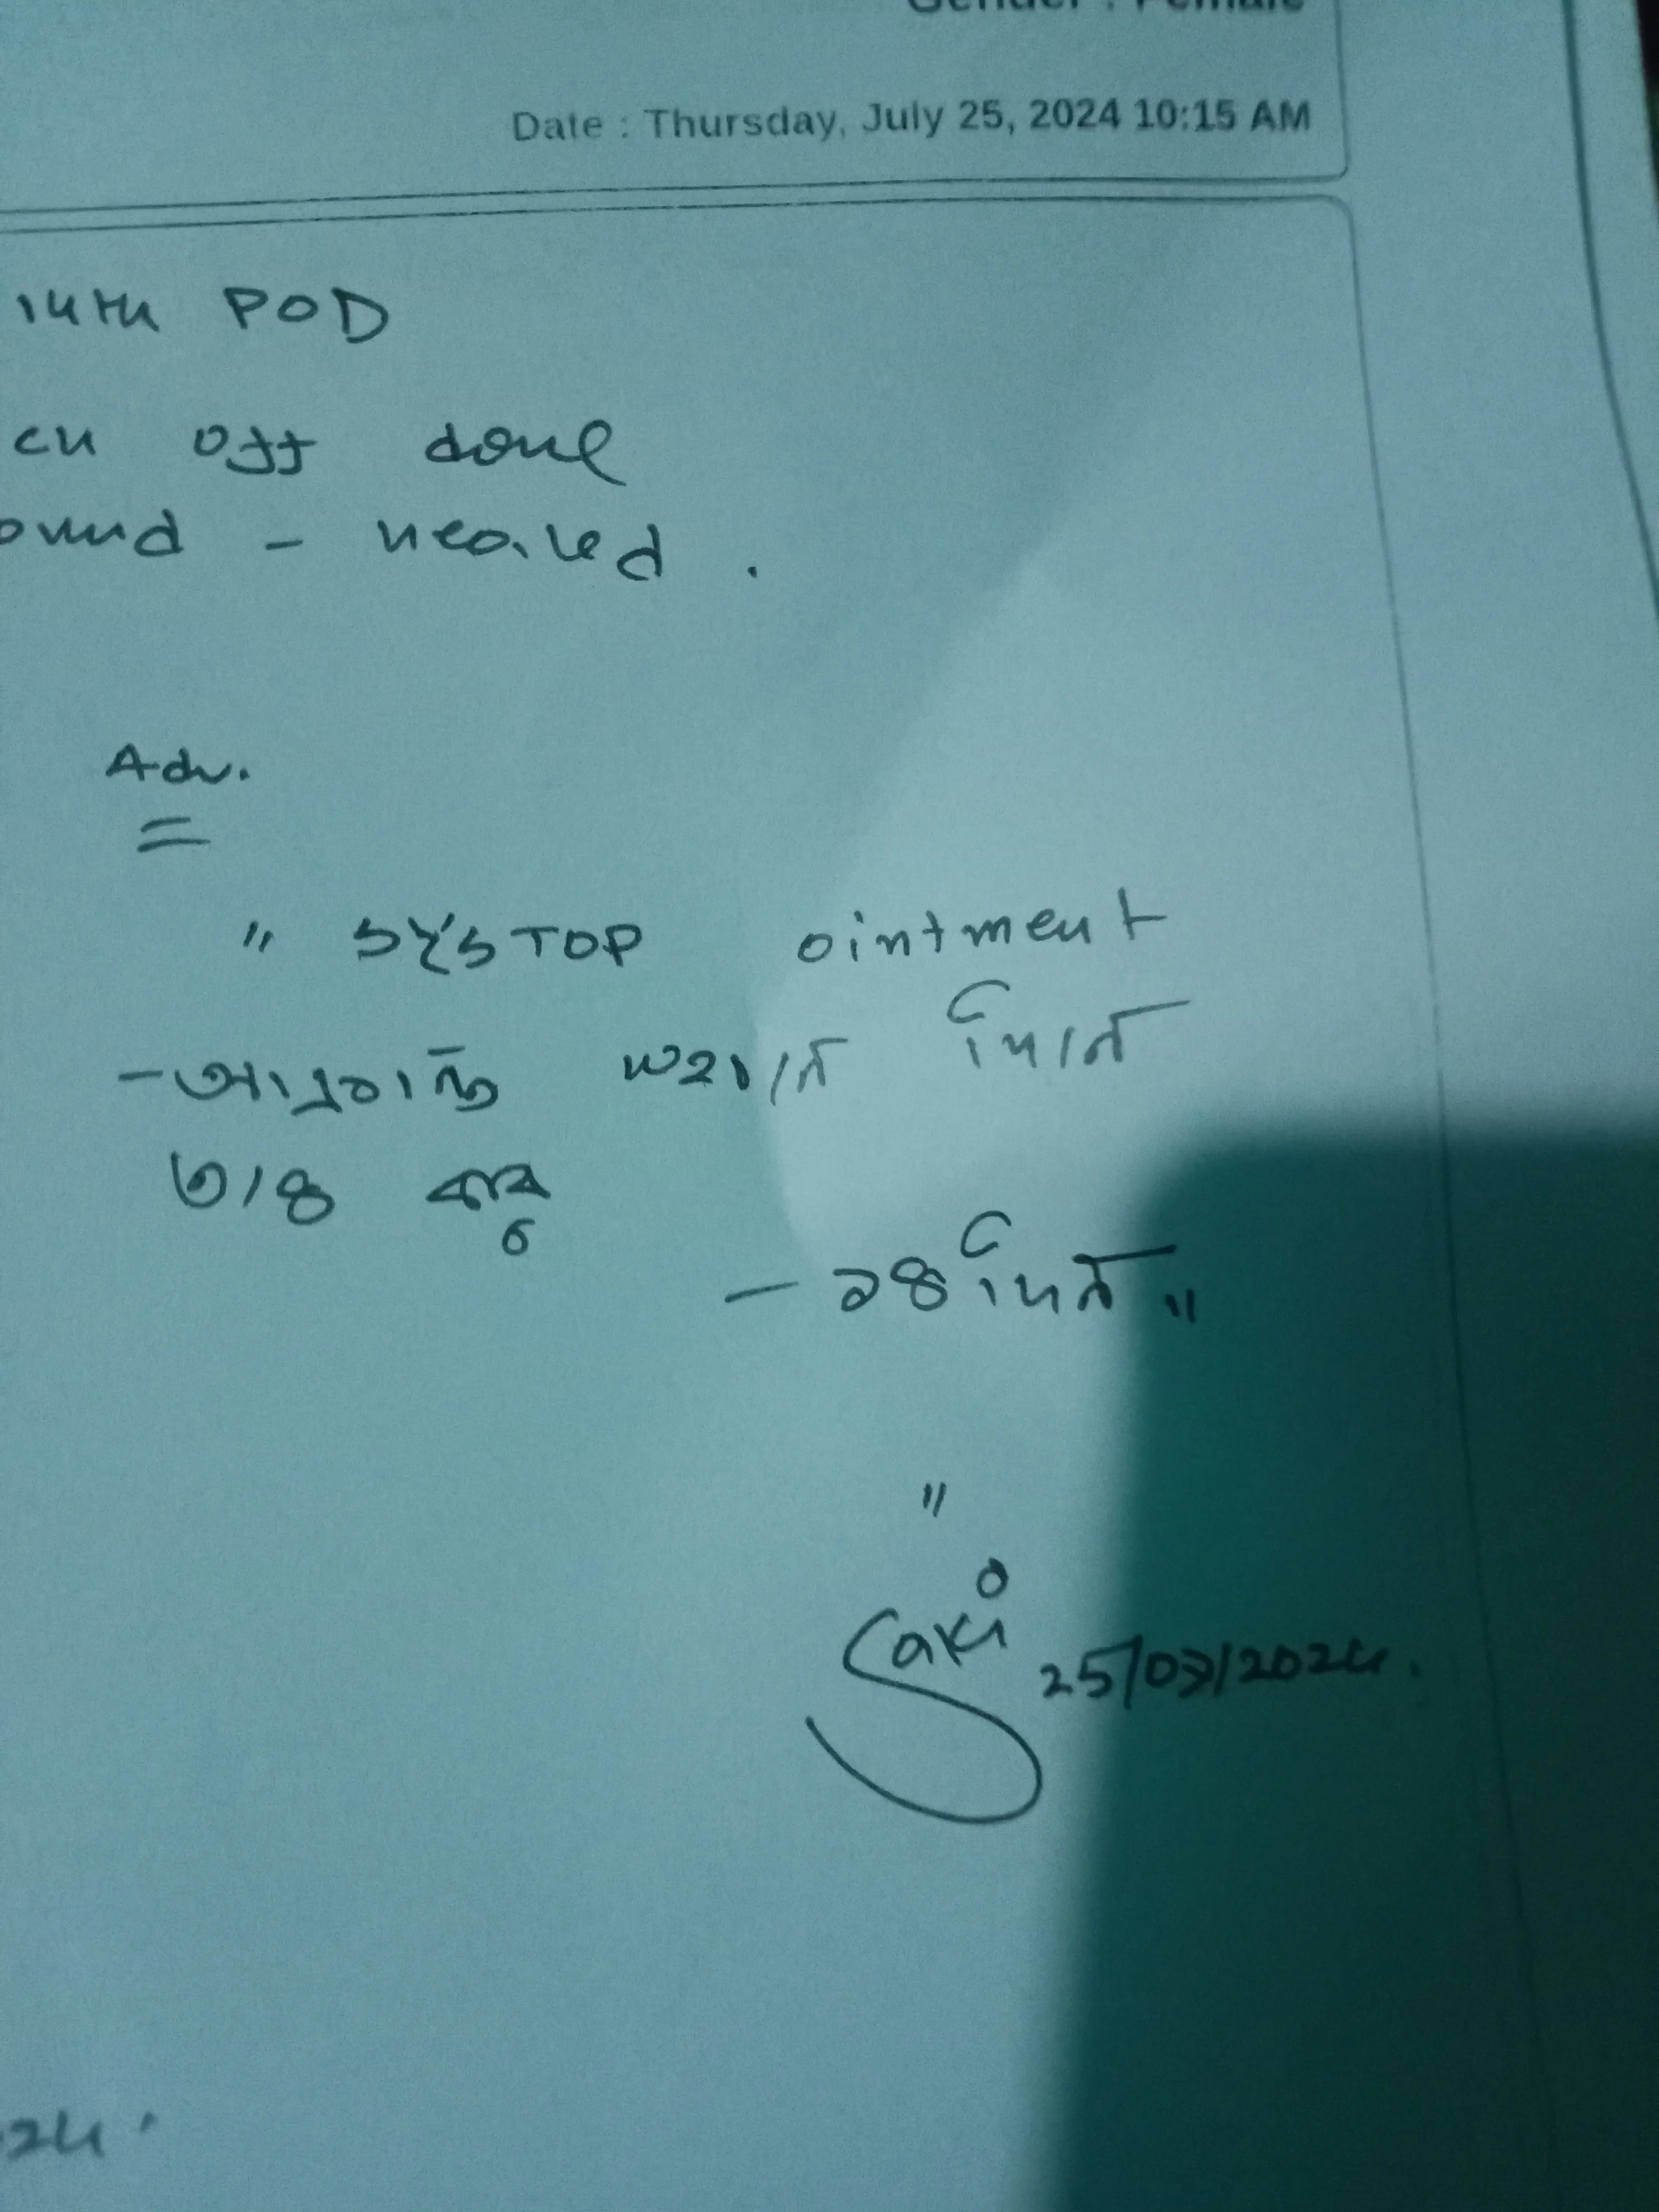 Gender : Female
Date : Thursday, July 25, 2024 10:15 AM
14th POD
ch off done
ound - healed .
Adv.
" SYSTOP ointment
- আক্রান্ত স্থানে দিনে
৩/৪ বার
- ১৪ দিন "
"
Saki 25/07/2024.
24.